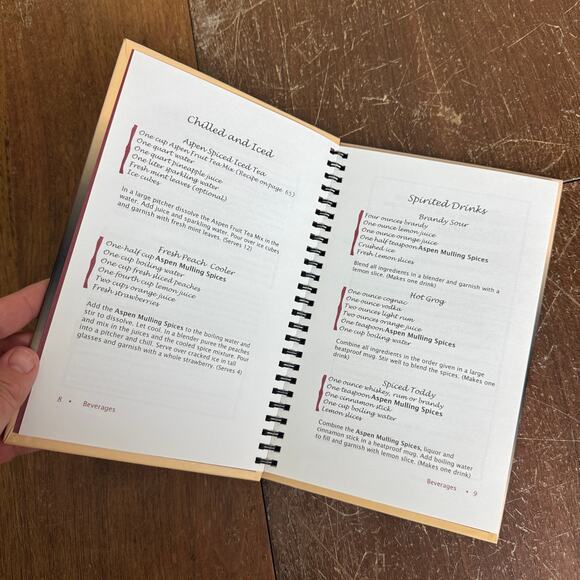 Chilled and Iced
Aspen Spiced Iced Tea
One cup Aspen Fruit Tea Mix (Recipe on page 65)
One quart water
One quart pineapple juice
One liter sparkling water
Fresh mint leaves (optional)
Ice cubes
In a large pitcher dissolve the Aspen Fruit Tea Mix in the
water. Add juice and sparkling water. Pour over ice cubes
and garnish with fresh mint leaves. (Serves 12)
Fresh Peach Cooler
One-half cup Aspen Mulling Spices
One cup boiling water
One cup fresh sliced peaches
One fourth cup lemon juice
Two cups orange juice
Fresh strawberries
Add the Aspen Mulling Spices to the boiling water and
stir to dissolve. Let cool. In a blender puree the peaches
and mix in the juices and the cooled spice mixture. Pour
into a pitcher and chill. Serve over cracked ice in tall
glasses and garnish with a whole strawberry. (Serves 4)
8 • Beverages
Spirited Drinks
Brandy Sour
Four ounces brandy
One ounce lemon juice
One ounce orange juice
One half teaspoon Aspen Mulling Spices
Crushed ice
Fresh lemon slices
Blend all ingredients in a blender and garnish with a
lemon slice. (Makes one drink)
Hot Grog
One ounce cognac
One ounce vodka
Two ounces light rum
Two ounces orange juice
One teaspoon Aspen Mulling Spices
One cup boiling water
Combine all ingredients in the order given in a large
heatproof mug. Stir well to blend the spices. (Makes one
drink)
Spiced Toddy
One ounce whiskey, rum or brandy
One teaspoon Aspen Mulling Spices
One cinnamon stick
One cup boiling water
Lemon slices
Combine the Aspen Mulling Spices, liquor and
cinnamon stick in a heatproof mug. Add boiling water
to fill and garnish with lemon slice. (Makes one drink)
Beverages • 9